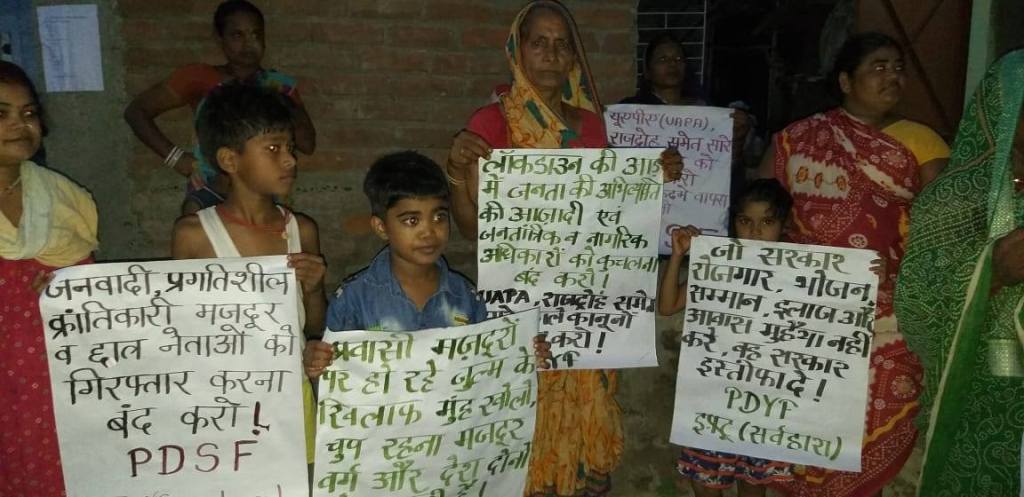 जनवादी, प्रगतिशील
क्रांतिकारी मजदूर
व छात्र नेताओं को
गिरफ्तार करना
बंद करो!
PDSF
प्रवासी मज़दूरों
पर हो रहे जुल्म के
खिलाफ मुंह खोलो,
चुप रहना मजदूर
वर्ग और देश दोनों
लॉकडाउन की आड़
में जनता की अभिव्यक्ति
की आजादी एवं
जनतांत्रिक व नागरिक
अधिकारों को कुचलना
बंद करो!
UAPA, राजद्रोह समेत
काले कानूनों
करो!
यूएपीए (UAPA),
राजद्रोह समेत सारे
को
वापस
जो सरकार
रोजगार, भोजन,
सम्मान, इलाज और
आवास मुहैय्या नहीं
करे, वह सरकार
इस्तीफा दे!
PDYF
इफ्टू (सर्वहारा)